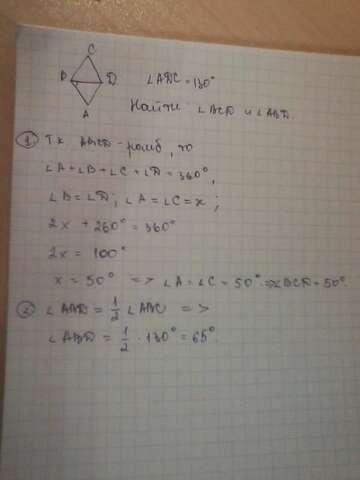 C
B D
A
∠ADC = 130°
Найти: ∠BCD и ∠ABD.
① Т.к. ABCD - ромб, то
∠A + ∠B + ∠C + ∠D = 360°,
∠B = ∠D; ∠A = ∠C = x;
2x + 260° = 360°
2x = 100°
x = 50° => ∠A = ∠C = 50° => ∠BCD = 50°.
② ∠ABD = 1/2 ∠ABC =>
∠ABD = 1/2 · 130° = 65°.